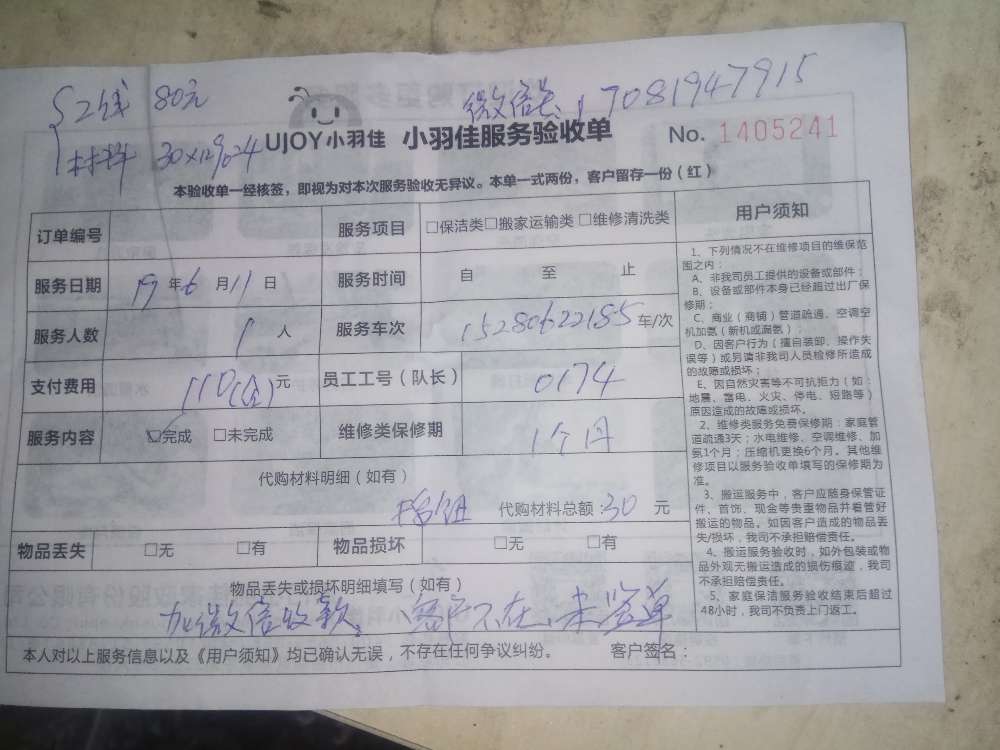 工钱 80元
微信 17081947915
材料
UJOY小羽佳 小羽佳服务验收单 No. 1405241
本验收单一经核签，即视为对本次服务验收无异议。本单一式两份，客户留存一份（红）
订单编号 服务项目 □保洁类□搬家运输类□维修清洗类
服务日期 19 年 6 月 11 日 服务时间 自 至 止
服务人数 1 人 服务车次 15280622185 车/次
支付费用 110 元 员工工号（队长） 0174
服务内容 ☑完成 □未完成 维修类保修期 1个月
代购材料明细（如有）
代购材料总额：30 元
物品丢失 □无 □有 物品损坏 □无 □有
物品丢失或损坏明细填写（如有）
加微信收款。客户不在，未签单
本人对以上服务信息以及《用户须知》均已确认无误，不存在任何争议纠纷。 客户签名：
用户须知
1、下列情况不在维修项目的维保范
围之内：
A、非我司员工提供的设备或部件；
B、设备或部件本身已经超过出厂保
修期；
C、商业（商铺）管道疏通、空调空
机加氨（新机或漏氨）；
D、因客户行为（擅自装卸、操作失
误等）或另请非我司人员检修所造成
的故障或损坏；
E、因自然灾害等不可抗拒力（如：
地震、雷电、火灾、停电、短路等）
原因造成的故障或损坏。
2、维修类服务免费保修期：家庭管
道疏通3天；水电维修、空调维修、加
氨1个月；压缩机更换6个月。其他维
修项目以服务验收单填写的保修期为
准。
3、搬运服务中，客户应随身保管证
件、首饰、现金等贵重物品并看管好
搬运的物品。如因客户造成的物品丢
失/损坏，我司不承担赔偿责任。
4、搬运服务验收时，如外包装或物
品外观无搬运造成的损伤痕迹，我司
不承担赔偿责任。
5、家庭保洁服务验收结束后超过
48小时，我司不负责上门返工。